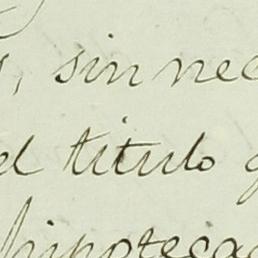 , sin nec
el titulo
hipoteca